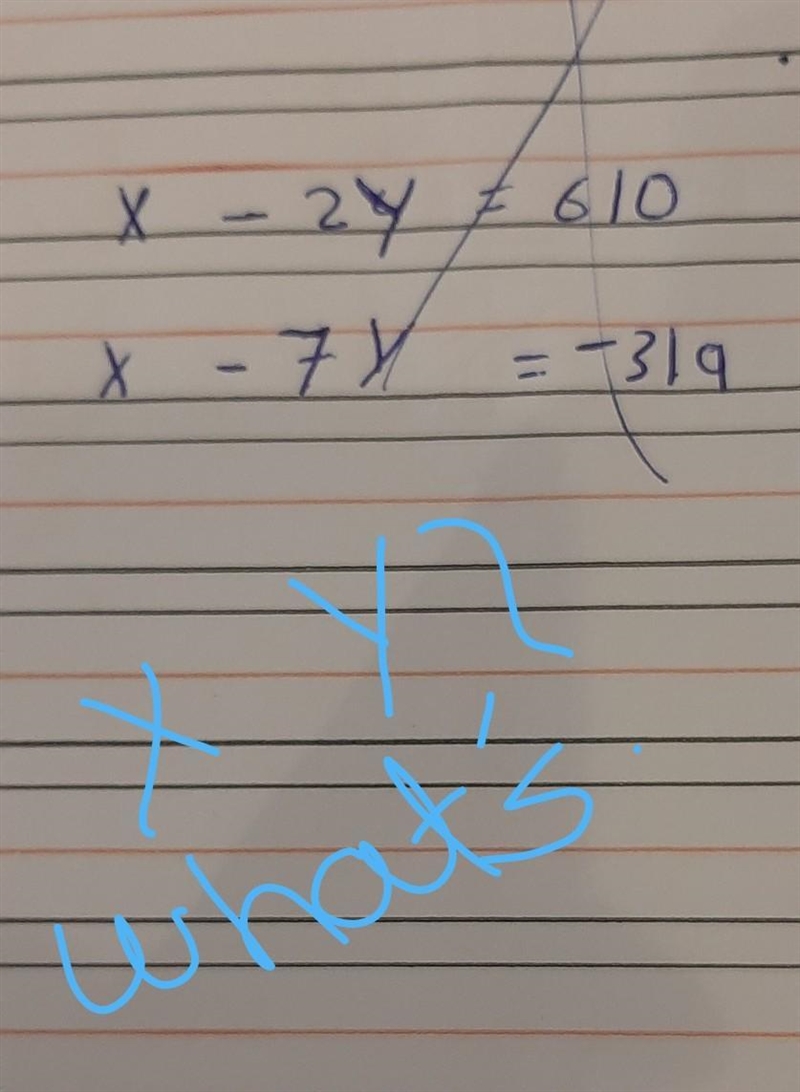 X - 2Y = 610
X - 7Y = -319
X Y?
what's